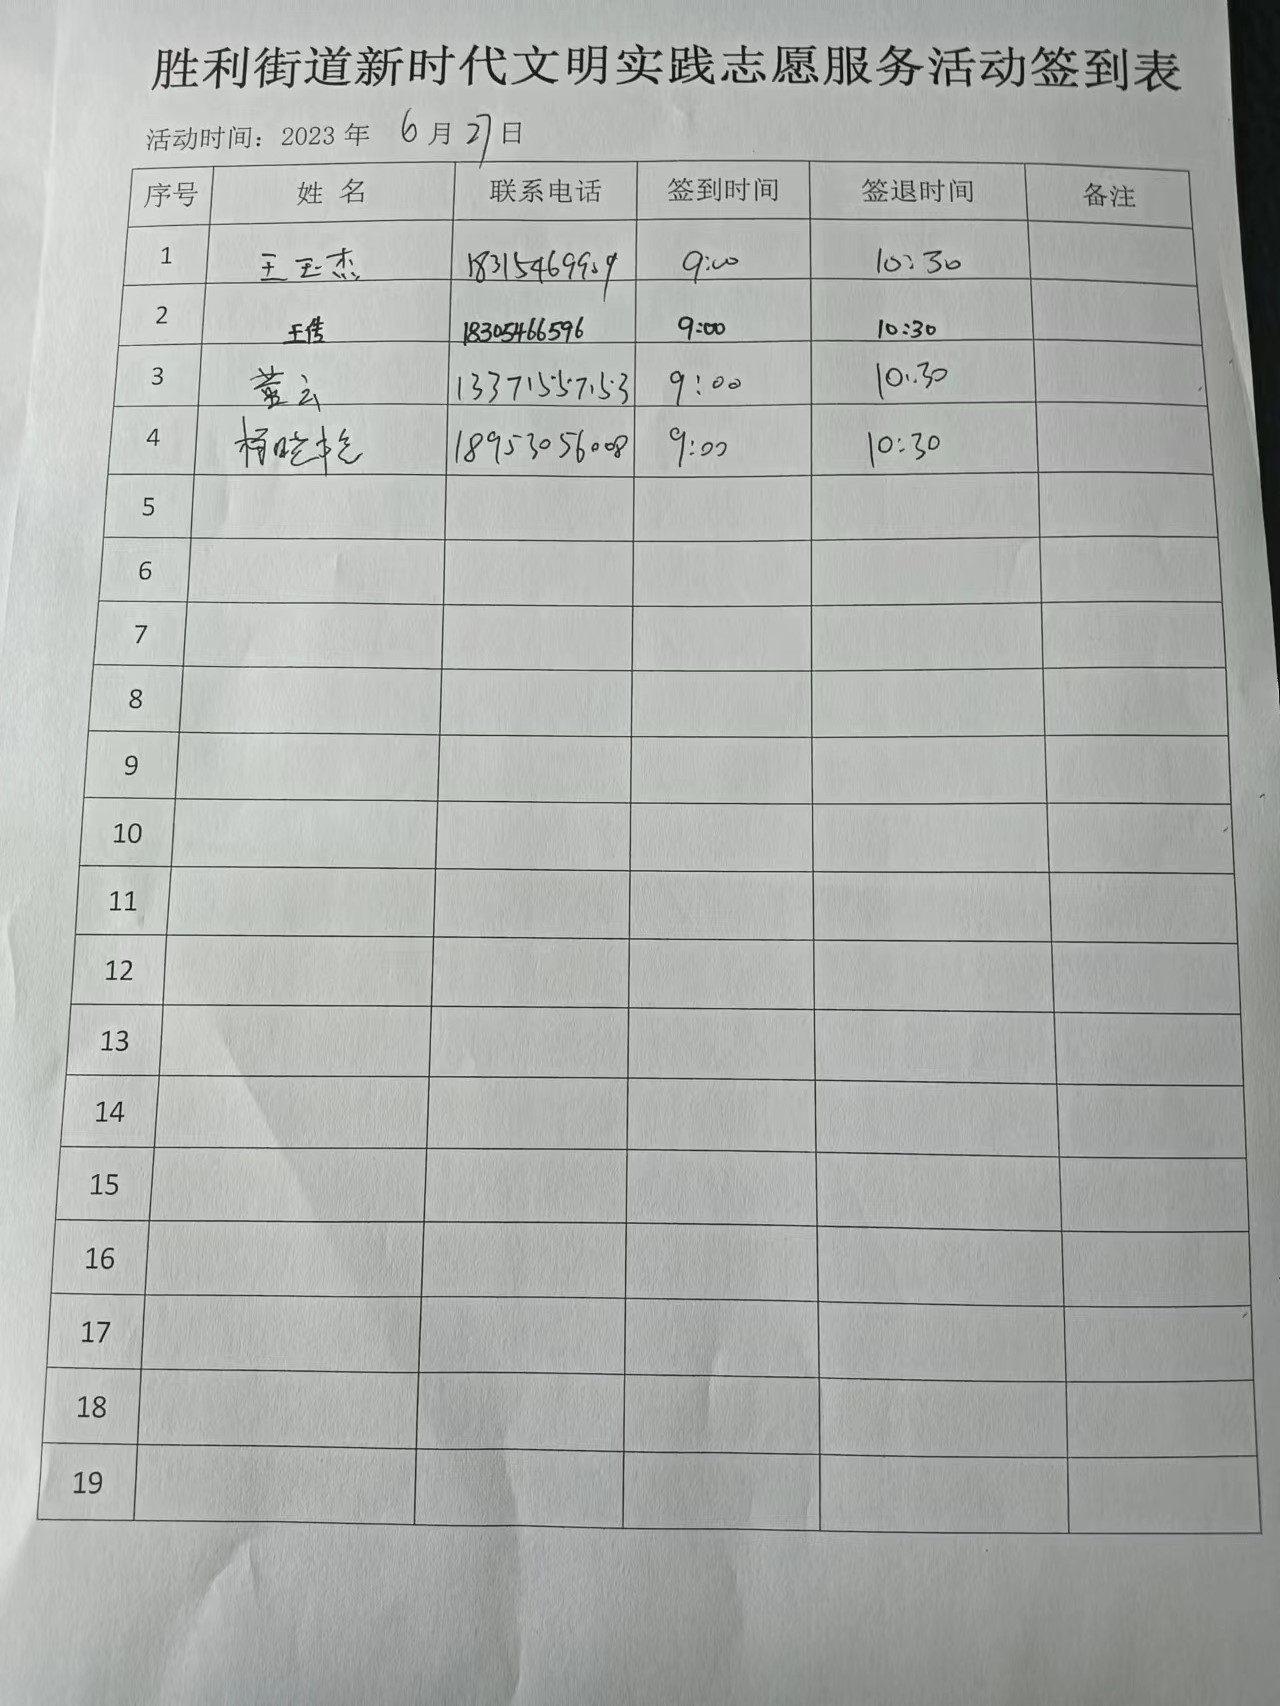 胜利街道新时代文明实践志愿服务活动签到表
活动时间：2023 年 6 月 27 日
序号 姓 名 联系电话 签到时间 签退时间 备注
1 王玉杰 18315469959 9:00 10:30
2 王倩 18305466596 9:00 10:30
3 董云 13371557153 9:00 10:30
4 杨晓艳 18953056008 9:00 10:30
5
6
7
8
9
10
11
12
13
14
15
16
17
18
19